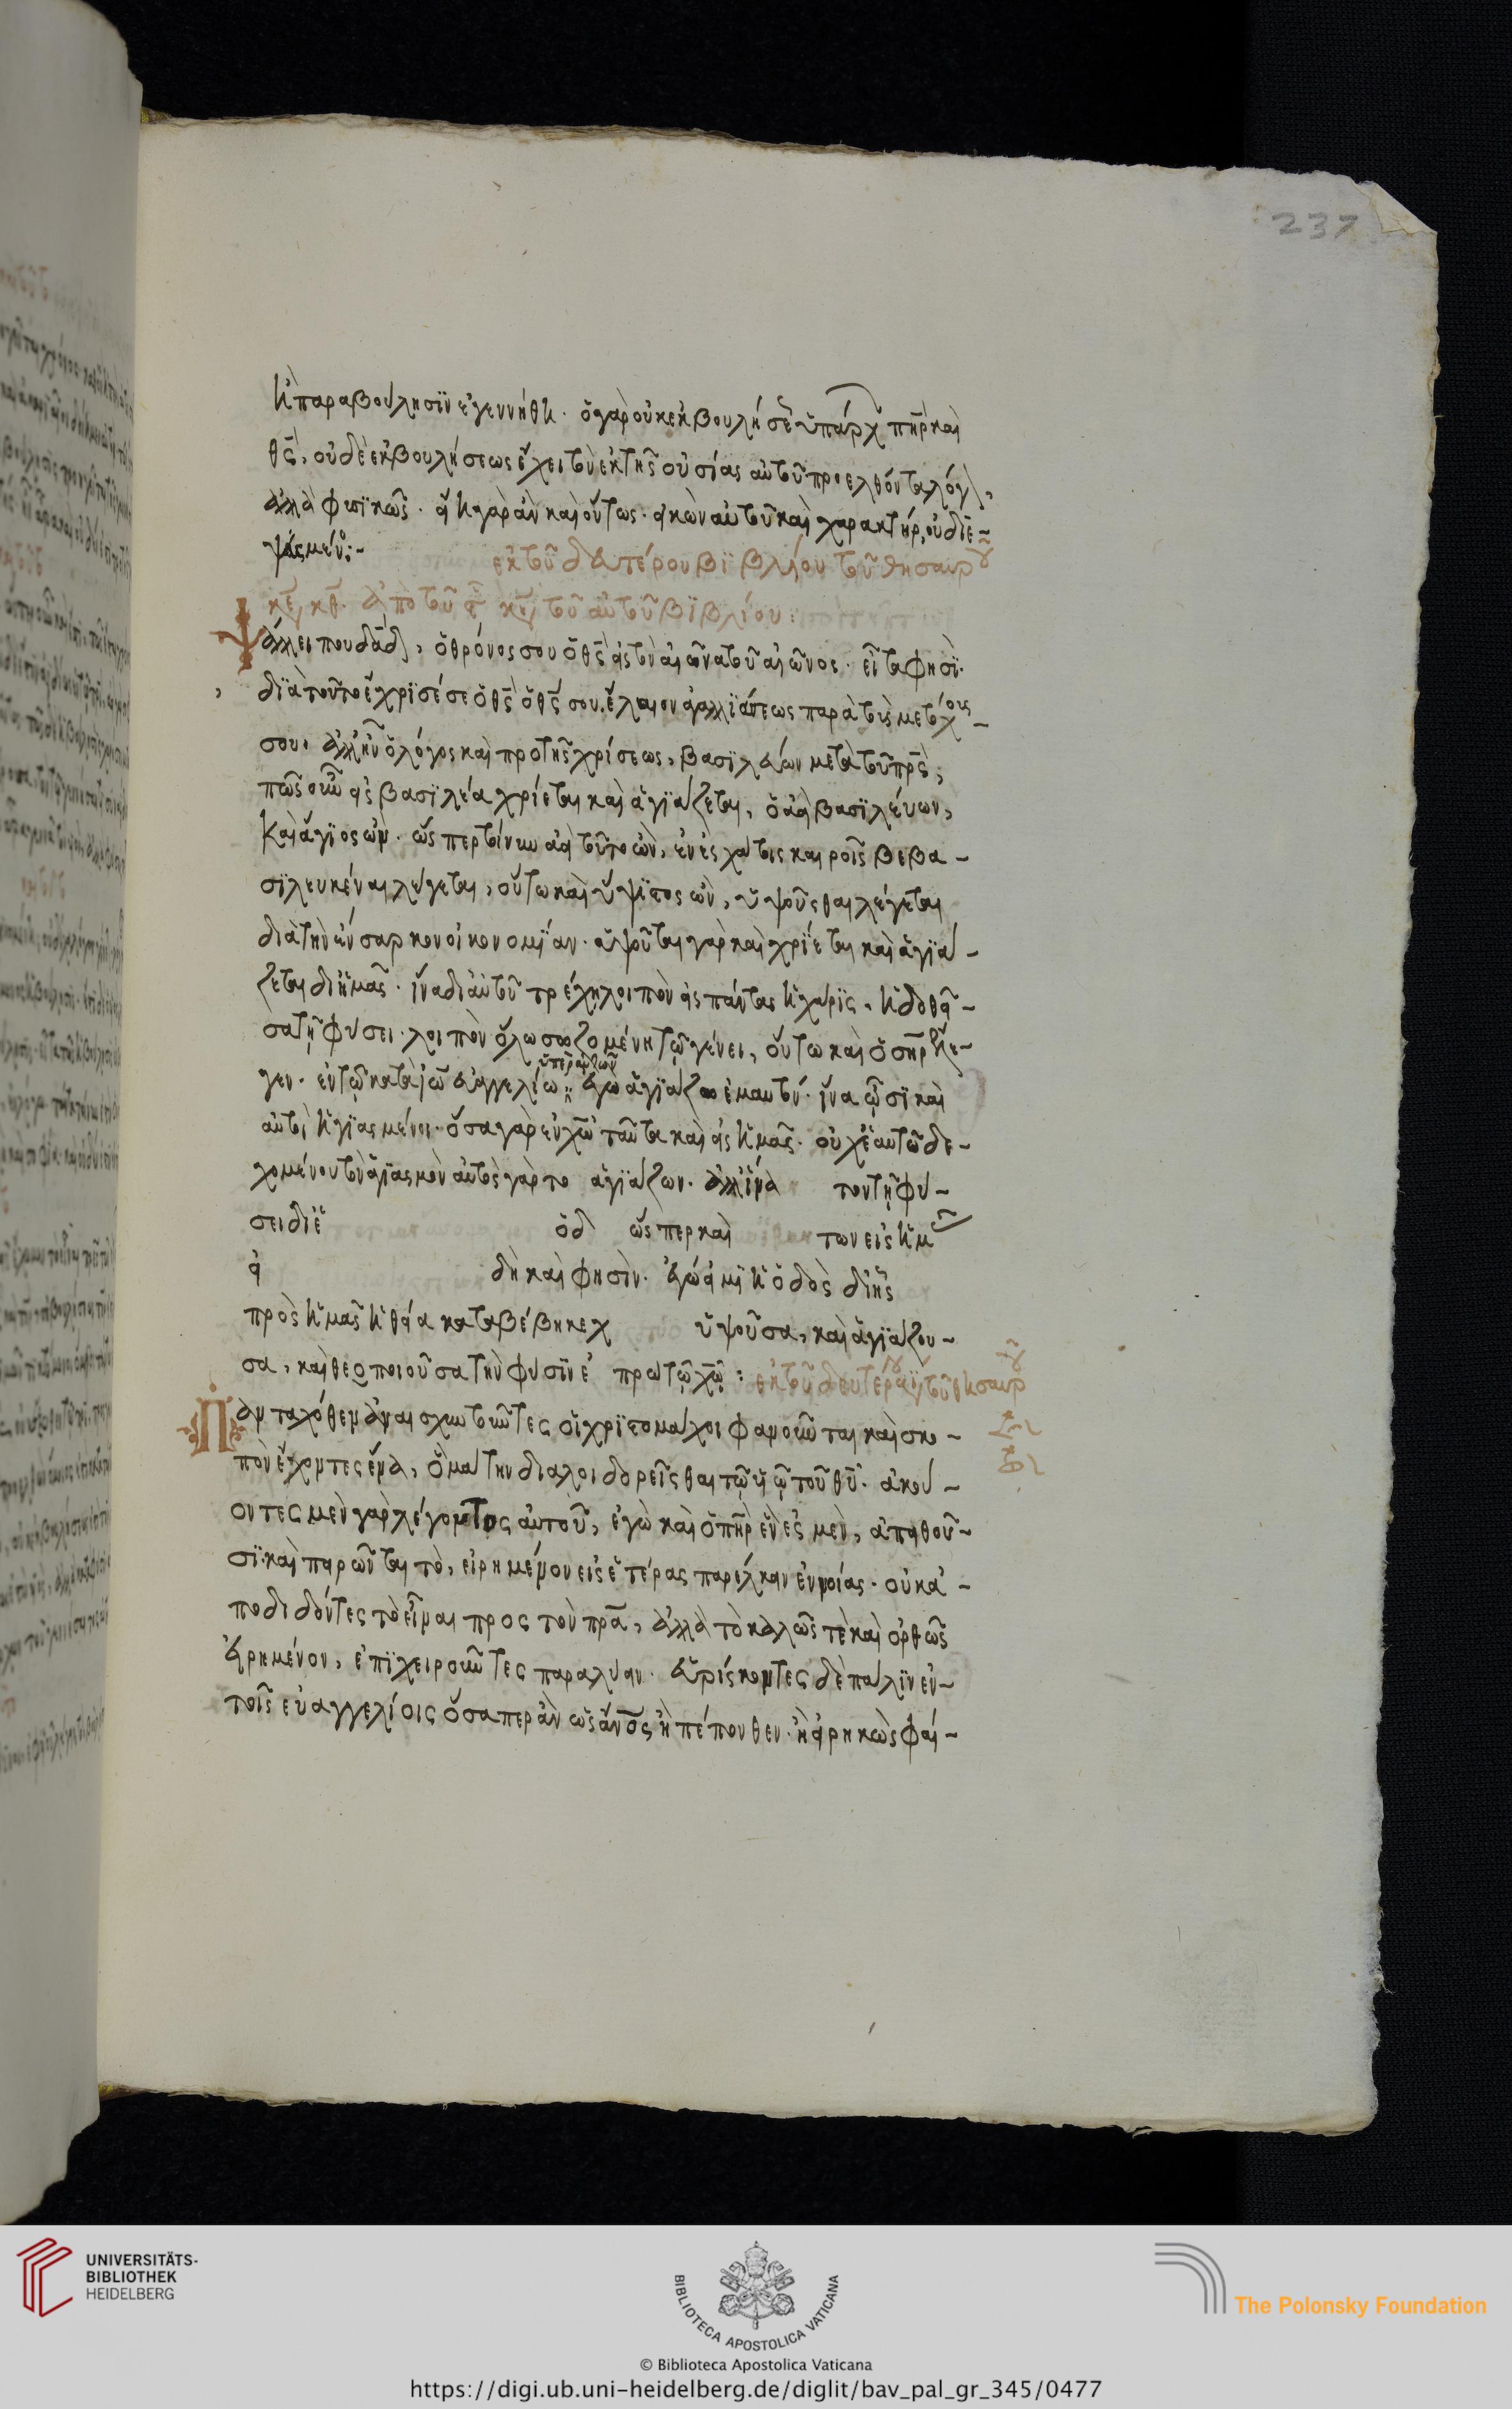 237
ἢ παρα βούλησϊν ἐγεννήθη. ὃ γὰρ οὐκ ἐκ βουλήσε ὑπάρχ πηρ καὶ
θς, οὐδὲ ἐκ βουλήσεως ἔχει τὸν ἐκ τῆς οὐσίας αὐτοῦ προελθόντα λόγ,
ἀλλὰ φυσϊκῶς. εἴη γὰρ ἂν καὶ οὕτως. εἰκὼν αὐτοῦ καὶ χαρακτήρ, οὐ διε-
ψευσμέν:-
ἐκ τοῦ δευτέρου βϊβλίου τοῦ θησαυρ
κε κθ. ἀπὸ τοῦ κε τοῦ αὐτοῦ βϊβλίου:
Ψάλλει που δαδ, ὁ θρόνος σου ὁ θς εἰς τὸν αἰῶνα τοῦ αἰῶνος. εἶτα φησϊ.
διὰ τοῦτο ἔχρϊσέ σε ὁ θς ὁ θς σου, ἔλαιον ἀγαλλϊάσεως παρὰ τοὺς μετόχους
σου. ἀλλ' ἦν ὁ λόγος καὶ προ τῆς χρίσεως, βασϊλεύων μετὰ τοῦ πρς,
πῶς οὖν εἰς βασϊλέα χρίεται καὶ ἁγϊάζεται, ὁ ἀεὶ βασϊλεύων,
καὶ ἅγϊος ὤν. ὥσπερ τοίνυν ἀεὶ τοῦτο ὢν, ἐν ἐσχάτοις καιροῖς βεβα-
σϊλευκέναι λέγεται, οὕτω καὶ ὕψϊστος ὢν, ὑψοῦσθαι λέγεται
διὰ τὴν ἔνσαρκον οἰκονομϊαν. ὑψοῦται γὰρ καὶ χρϊεται καὶ ἁγϊά-
ζεται δι ἡμᾶς. ἵνα δι αὐτοῦ τρέχη λοιπὸν εἰς πάντας ἡ χάρϊς, ἡ δοθεῖ-
σα τῇ φύσει. λοιπὸν ὅλω σωζομένη τῷ γένει, οὕτω καὶ ὁ σηρ ἔλε-
γεν. ἐν τῷ κατὰ ἰω εὐαγγελίω ὑπὲρ αὐτῶν ἐγὼ ἁγϊάζω ἐμαυτόν. ἵνα ὦσϊ καὶ
αὐτοὶ ἡγϊασμένοι. ὅσα γὰρ ἐν χω ταῦτα καὶ εἰς ἡμᾶς. οὐχ ἑαυτῶ δε-
χομένου τὸν ἁγϊασμὸν αὐτὸς γὰρ το ἁγϊάζων. ἀλλ' ἵνα τουτη φύ-
σει διε ὁδ ὥσπερ καὶ των εἰς ἡμ
δὴ καὶ φησϊν. ἐγώ εἰμϊ ἡ ὁδὸς δι ἧς
πρὸς ἡμᾶς ἡ θεία καταβέβηκε χ ὑψοῦσα, καὶ ἁγϊάζου-
σα, καὶ θεοποιοῦσα τὴν φύσϊν ε πρωτω χω:
ἐκ τοῦ δευτέρ τοῦ θησαυρ
Πανταχόθεν ἀναισχυντοῦντες οἱ χρϊστομάχοι φανοῦνται καὶ σκο-
πὸν ἔχοντες ἕνα, ὃ μάτην διαλοιδορεῖσθαι τῷ υἱῷ τοῦ θυ. ἀκού-
οντες μὲν γὰρ λέγοντος αὐτοῦ, ἐγὼ καὶ ὁ πηρ ἕν ἐσμεν, ἀπειθοῦ-
σϊ. καὶ πειρῶνται τὸ, εἰρημένον εἰς ἑτέρας παρέλκειν ἐννοίας. οὐκ ἀ-
ποδιδόντες τὸ εἶναι προς τὸν πρα, ἀλλὰ τὸ καλῶς τὲ καὶ ὀρθῶς
εὑρημένον, ἐπϊχειροῦντες παραλύειν. εὑρίσκοντες δὲ πάλϊν ἐν
τοῖς εὐαγγελίοις ὅσα περ ἂν ὡς ανος ἢ πέπονθεν. ἢ εἰρηκὼς φαί-
UNIVERSITÄTS-
BIBLIOTHEK
HEIDELBERG
BIBLIOTECA APOSTOLICA VATICANA
The Polonsky Foundation
© Biblioteca Apostolica Vaticana
https://digi.ub.uni-heidelberg.de/diglit/bav_pal_gr_345/0477